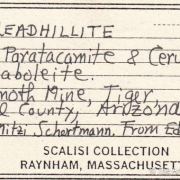 LEADHILLITE
Paratacamite & Ceru
aboleite.
moth Mine, Tiger,
l County, Arizona
Mitzi Schortmann, From Ed
SCALISI COLLECTION
RAYNHAM, MASSACHUSET